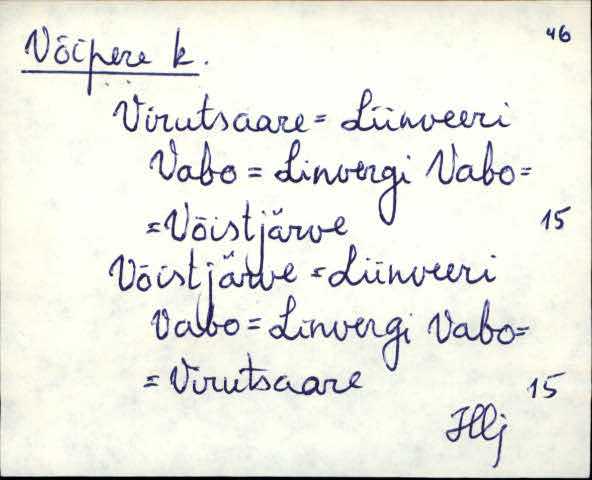 46
Võipere k.
Virutsaare = Liinveeri
Vabo = Linvergi Vabo =
= Võistjärve 15
Võistjärve = Liinveeri
Vabo = Linvergi Vabo =
= Virutsaare 15
Hlj